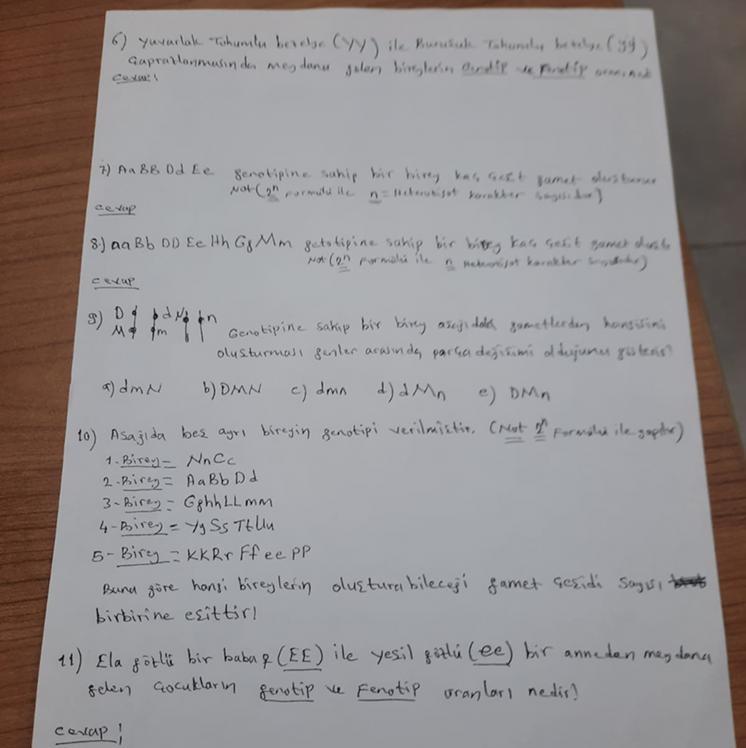 6) Yuvarlak Tohumlu bezelye (YY) ile Buruşuk Tohumlu bezelye (yy)
Çaprazlanmasından meydana gelen bireylerin Genotip ve Fenotip
Cevap:
7) AaBB Dd Ee genotipine sahip bir birey kaç çeşit gamet oluşturur
Not (2ⁿ formülü ile n = Heterozigot karakter sayısıdır)
cevap
8) aaBb DD Ee Hh Gg Mm genotipine sahip bir birey kaç çeşit gamet
Not (2ⁿ formülü ile n Heterozigot karakter sayısıdır)
cevap
9) D d N n
M m
Genotipine sahip bir birey aşağıdaki gametlerden hangisini
oluşturması genler arasında parça değişimi olduğunu gösterir?
a) dmN b) DMN c) dmn d) dMn e) DMn
10) Aşağıda beş ayrı bireyin genotipi verilmiştir. (Not 2ⁿ Formülü ile yapılır)
1-Birey = NnCc
2-Birey = AaBbDd
3-Birey = GghhLLmm
4-Birey = YySsTtUu
5-Birey = KKRrFfeePP
Buna göre hangi bireylerin oluşturabileceği gamet çeşidi sayısı
birbirine eşittir?
11) Ela gözlü bir baba (EE) ile yeşil gözlü (ee) bir anneden meydana
gelen çocukların genotip ve Fenotip oranları nedir?
cevap: